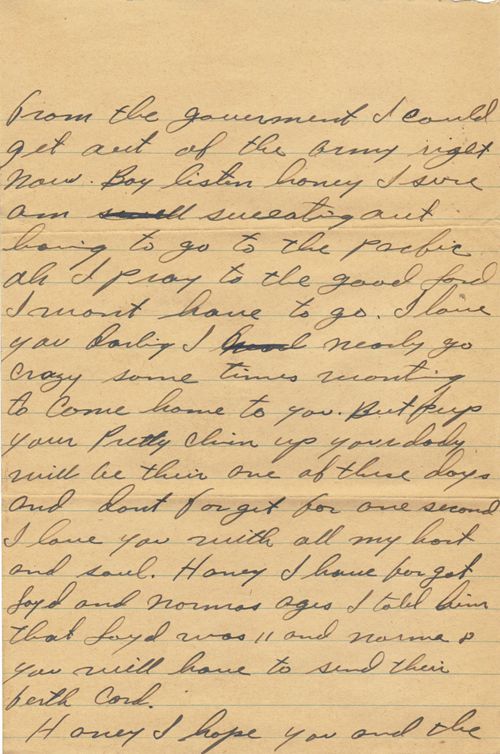 from the goverment I could
get out of the army right
now. Boy listen honey I sure
am sweating out
having to go to the pacfic
oh I pray to the good lord
I wont have to go. I love
you darling I nearly go
crazy some times wanting
to come home to you. But keep
your Pretty chin up your dady
will be their one of these days
and dont forget for one second
I love you with all my hart
and soul. Honey I have forgot
loyd and normas ages I told him
that loyd was 11 and norma 8
you will have to send their
berth card.
Honey I hope you and the